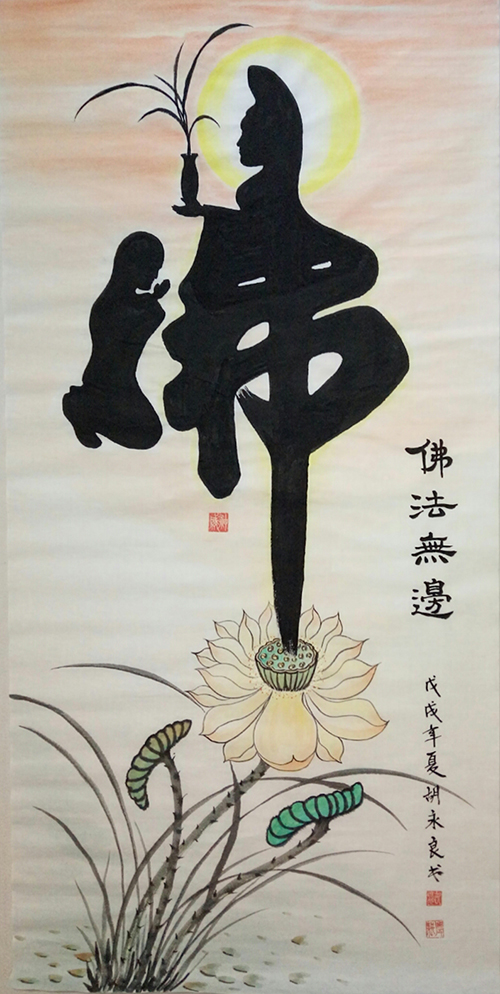 佛
佛法無邊
戊戌年夏胡永良书